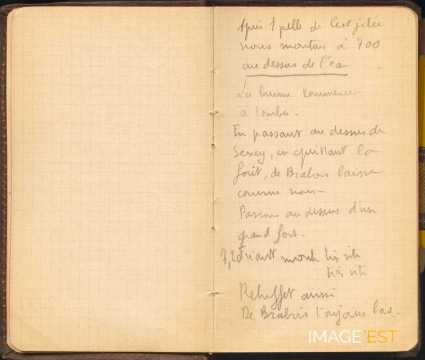 Après 1 pelle de lest jetée
nous montons à 900
au dessus de l'eau
La brume commence
à tomber.
En passant au dessus de
Sexey, en quittant la
forêt, de Brabois laisse
comme nous
Passons au dessus d'un
grand fort.
monte très vite
très vite
Rehesset aussi
De Brabois toujours bas.
IMAGE'EST